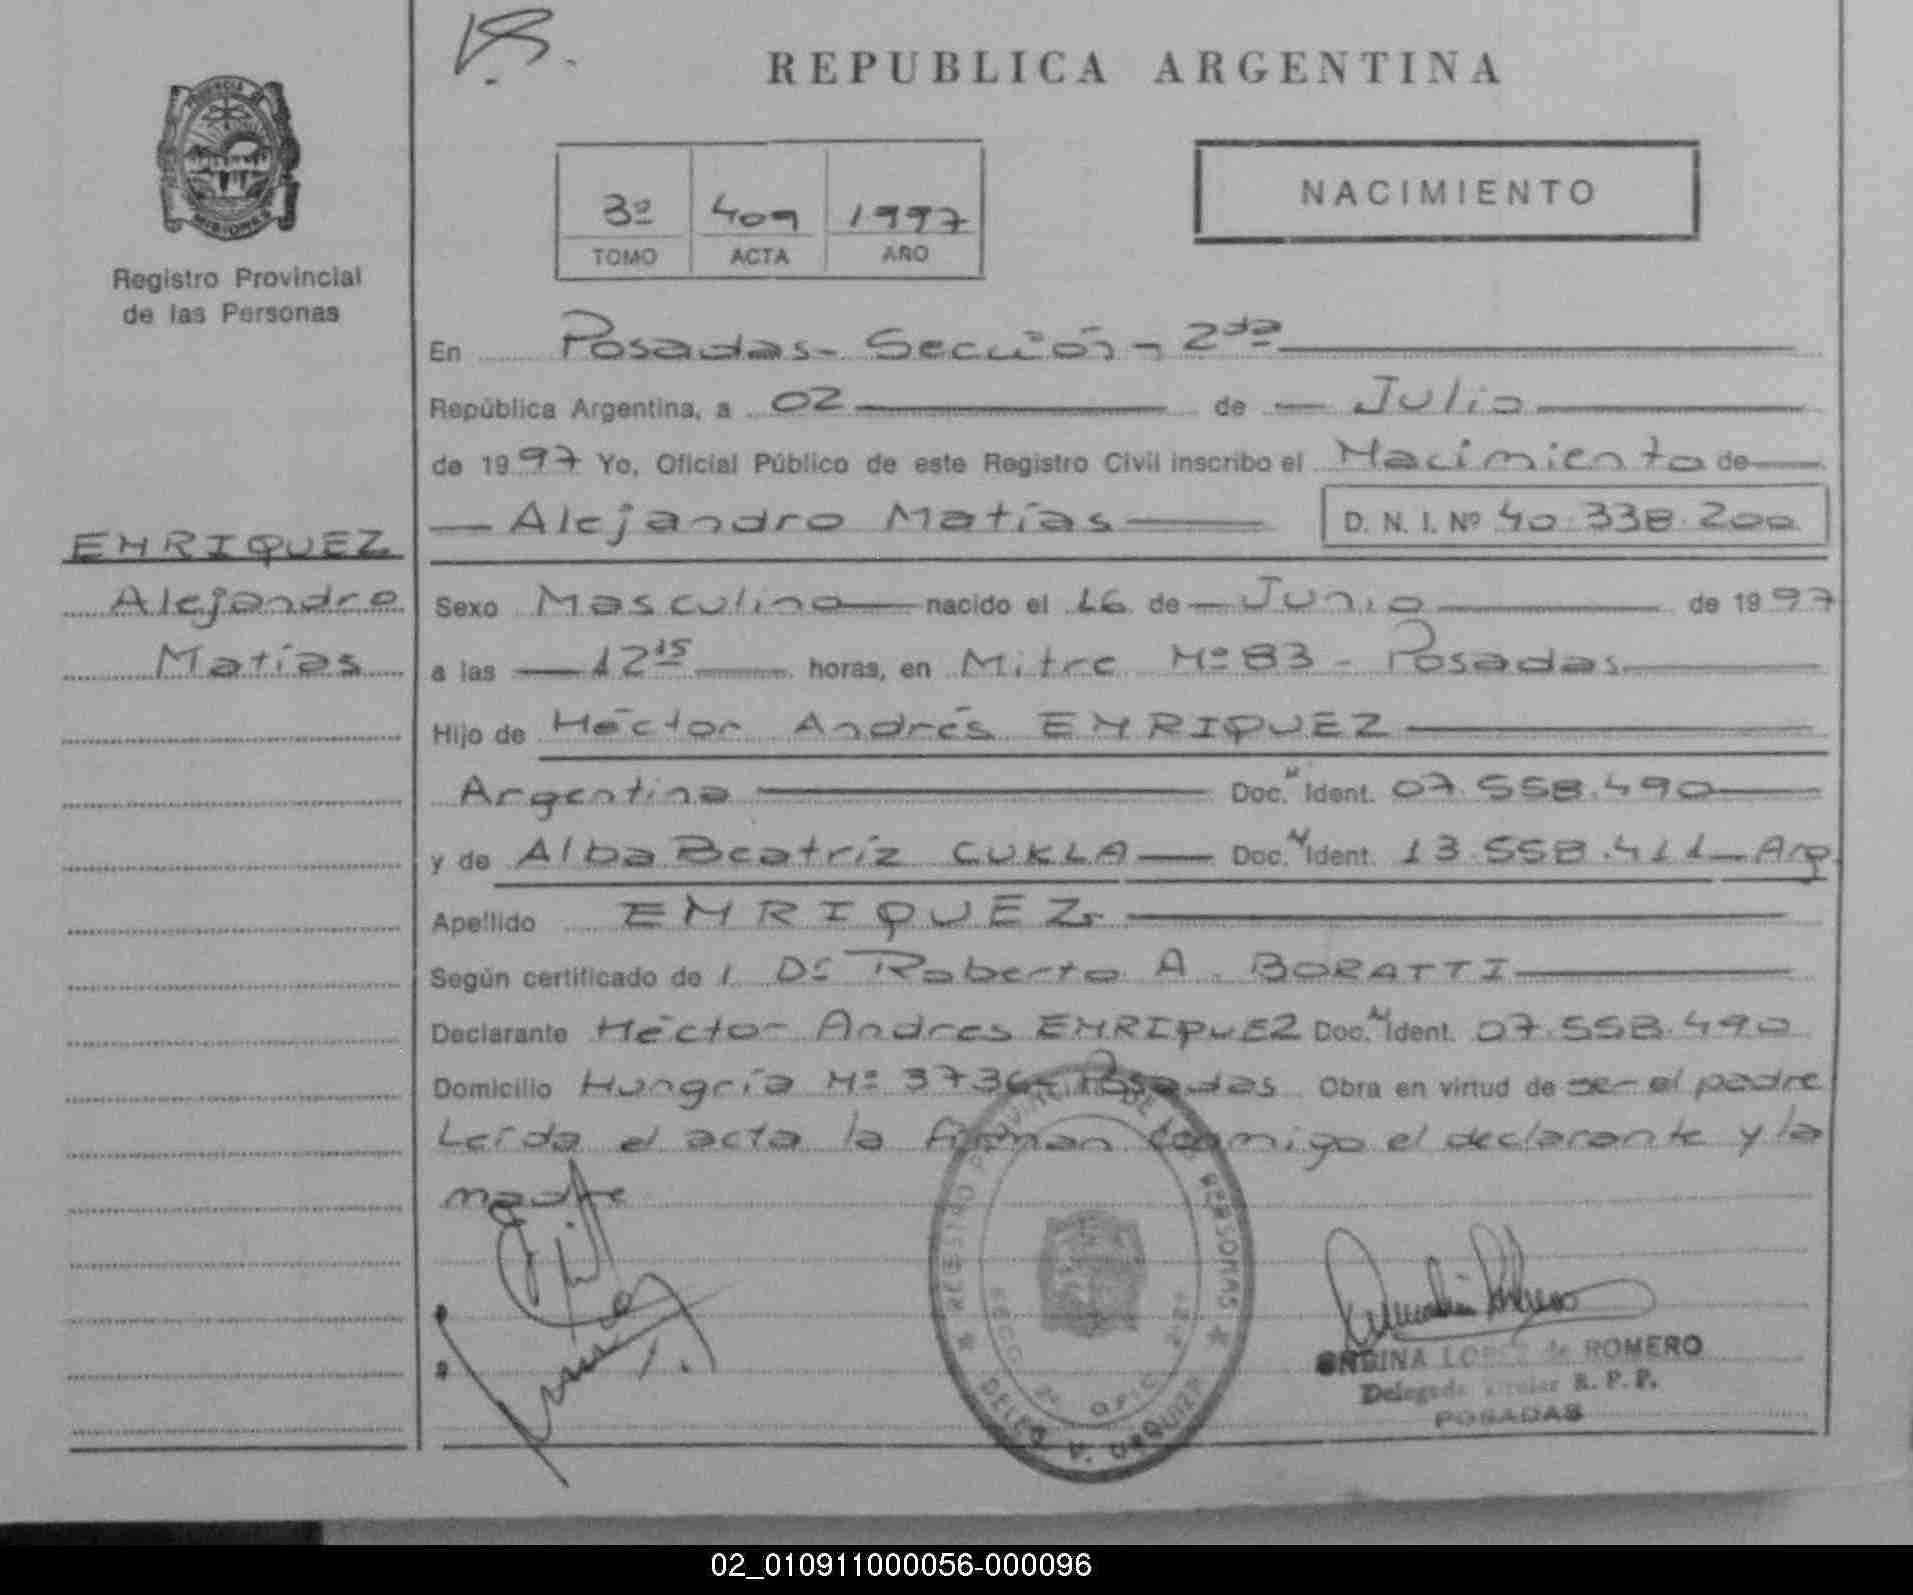 REPUBLICA ARGENTINA
PROVINCIA DE
MISIONES
Registro Provincial
de las Personas
3º 409 1997
TOMO ACTA AÑO
NACIMIENTO
En Posadas - Sección - 2da
República Argentina, a 02 de Julio
de 1997 Yo, Oficial Público de este Registro Civil inscribo el Nacimiento de
Alejandro Matías D. N. I. Nº 40.338.200
ENRIQUEZ
Alejandro
Matías
Sexo Masculino nacido el 16 de Junio de 1997
a las 12 15 horas, en Mitre Nº 83 - Posadas
Hijo de Héctor Andrés ENRIQUEZ
Argentina Doc. N Ident. 07.558.490
y de Alba Beatríz CUKLA Doc. N Ident. 13.558.411 - Arg.
Apellido ENRIQUEZ
Según certificado de / Dr Roberto A. BORATTI
Declarante Héctor Andres ENRIQUEZ Doc. N Ident. 07.558.490
Domicilio Hungría Nº 3736 - Posadas Obra en virtud de ser el padre
Leída el acta la firman conmigo el declarante y la
madre
REGISTRO PROVINCIAL DE LAS PERSONAS
SECC. 2ª OFIC.
DELEG. V. URQUIZA
LOPEZ de ROMERO
Delegada Titular R. P. P.
POSADAS
02_010911000056-000096